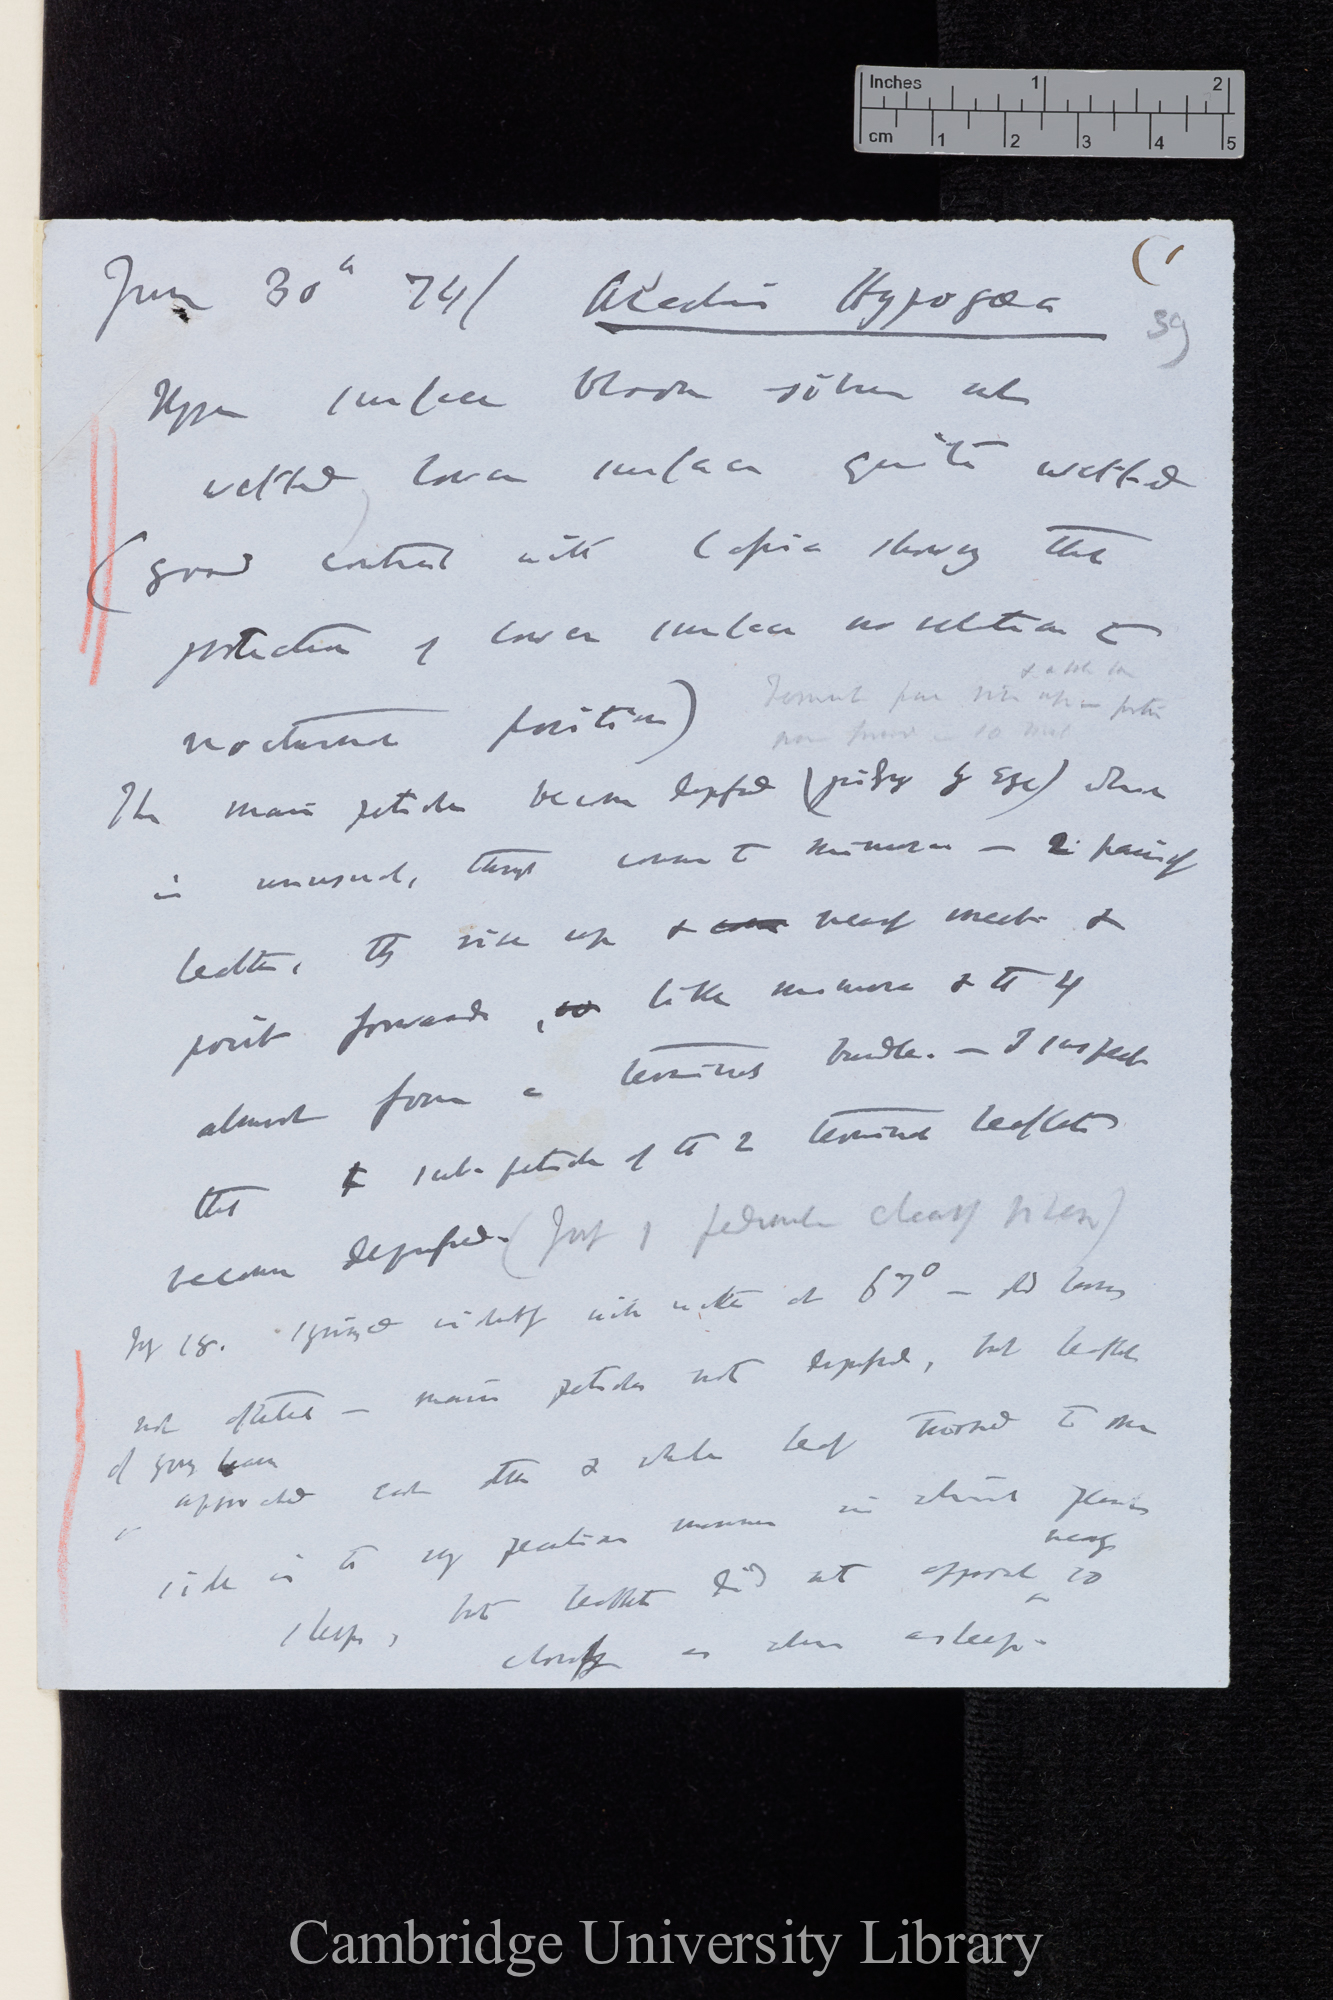 Inches 1 2
cm 1 2 3 4 5
June 30th 74/ Arachis Hypogœa
39
Upper surface bloom silvery when
wetted, lower surface quite wetted
(good contrast with showing that
protection of lower surface no relation to
nocturnal position)
up
in 10
The main petioles become depressed (judging by Eye) which
is unusual, though common to mimosa — 2 pairs of
leaflets, they rise up & nearly meet &
point forwards, like mimosa & the 4
almost form a terminal bundle. — I suspect
that sub-petioles of the 2 terminal leaflets
become depressed. (just 1 peduncle clearly risen)
July 18. Syringed violently with water at 67° — old leaves
not affected — main petioles not depressed, but leaflets
of young leaves
approached each other & whole leaf turned to one
side in the very peculiar manner in which plant
nearly
sleeps, but leaflets did not approach so
closely as when asleep.
Cambridge University Library